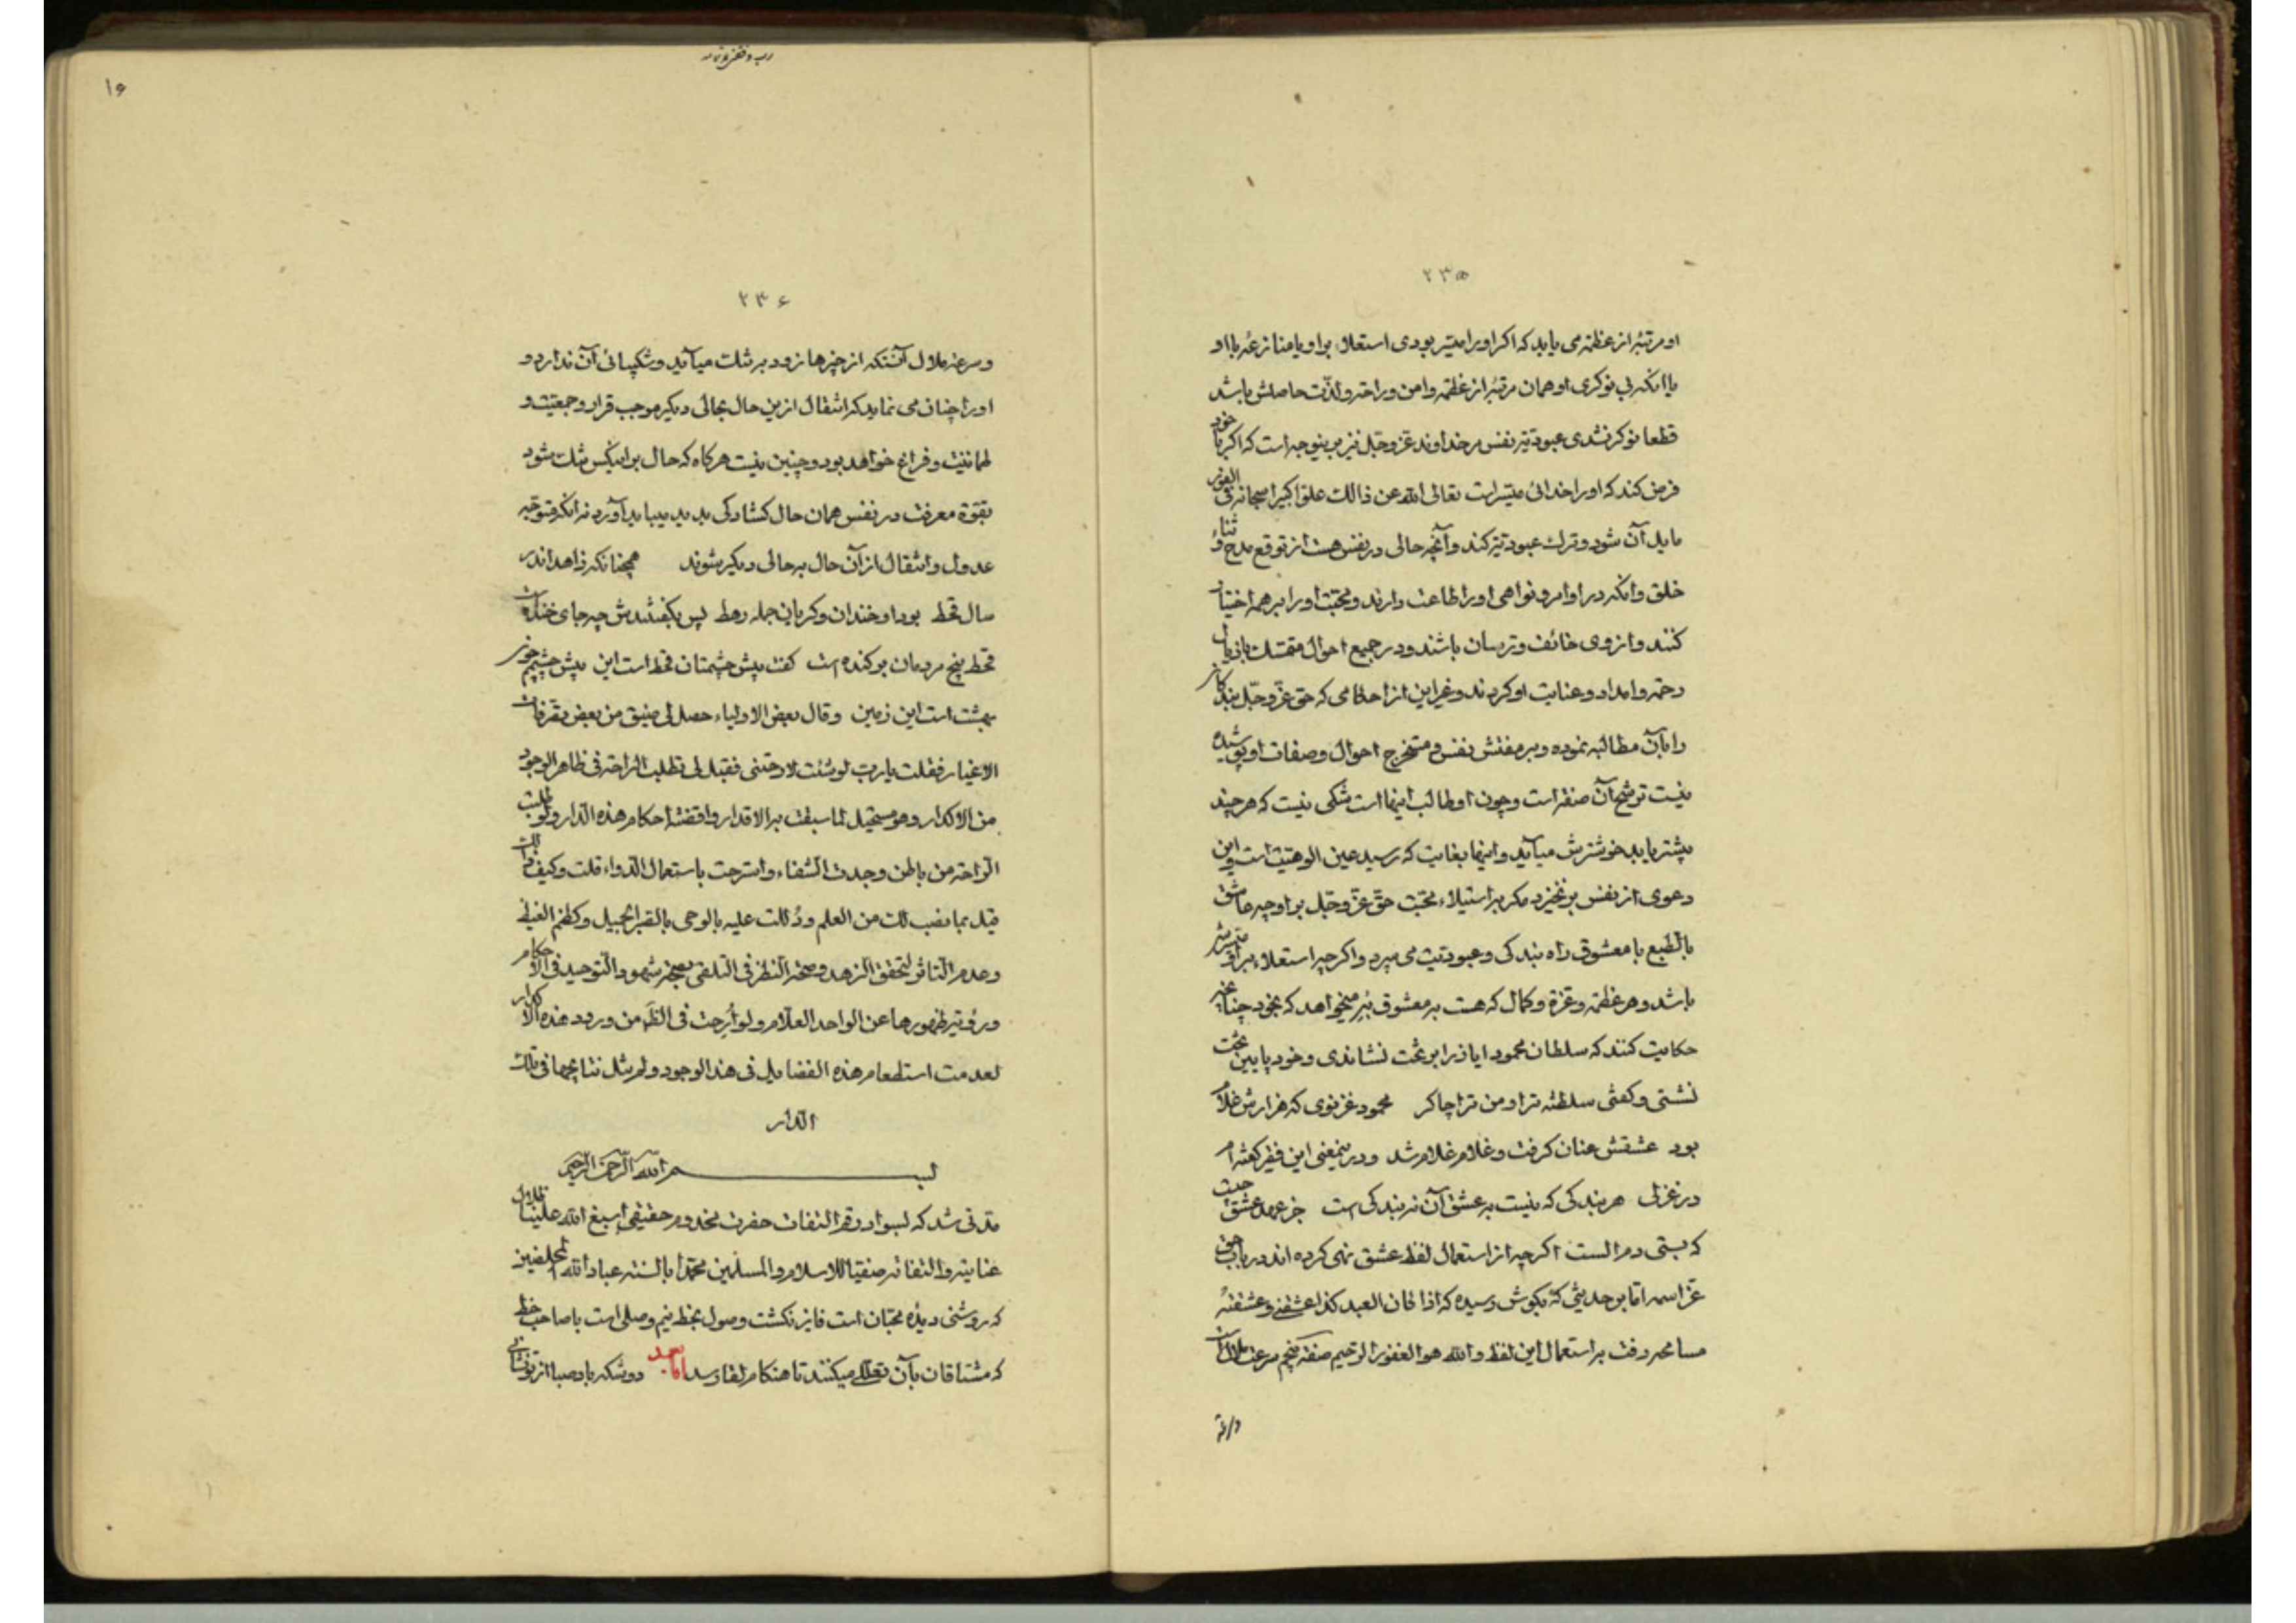 ۲۳۵
او مرتبهٔ از عظمة می یابد که اکر اورا میسّر بودی استعلا براو یا منازعه با او
با انکه بی نوکری او همان مرتبهٔ از عظمة وامن وراحة ولذّت حاصلش باشد
قطعا نوکر نشدی عبودیّة نفس مر خداوند عزّوجلّ نیز برینوجه است که اکر با خود
فرض کند که اورا خدائی میسّراست تعالی الله عن ذالك علوّا کبیرا سبحانه فی الفور
مایل آن شود وترك عبودیّة کند وآنچه حالی در نفس هست از توقع مدح وثناء
خلق وانکه در اوامر و نواهی اورا طاعت دارند ومحبّت اورا بر همه اختیار
کنند واز وی خائف وترسان باشند ودر جمیع احوال متمسّك باذیال
رحمة وامداد وعنایت او کردند وغیر این از احکامی که حق عزّوجلّ بندکانرا
را بآن مطالبه نموده وبر مفتش نفس و مستخرج احوال وصفات او پوشیده
نیست ترشّح آن صفة است وچون او طالب اینها است شکی نیست که هر چند
بیشتر یابد خوشترش میآید واینها بغایت که رسید عین الوهیّت است واین
دعوی از نفس بر نخیزد مکر باستیلاء محبّت حق عزّوجلّ براو چه عاشق
بالطّبع با معشوق راه بندکی وعبودیّت می سپرد واکرچه استعلاء براو میسّرش
باشد وهر عظمة وعزة وکمال که هست بر معشوق میخواهد که بخود چنانچه
حکایت کنند که سلطان محمود ایاز را بر تخت نشاندی وخود پایین تخت
نشستی وکفتی سلطنه ترا ومن ترا چاکر محمود غزنوی که هزارش غلام
بود عشقش عنان کرفت و غلام غلام شد ودرینمعنی این فقیر کفته ام
در غزلی هر بندکی که نیست به عشق آن نه بندکی است جز عهد عشق چیست
که بستی دم الست اکرچه از استعمال لفظ عشق نهی کرده اند در باب حق
عزّ اسمه اما بر حدیثی که بکوش رسیده که اذا کان العبد کذا عشقنی وعشقتهُ
مسامحه رفت بر استعمال این لفظ والله هو الغفور الرّحیم صفة پنجم سرعت ملال است
وسرعة
۲۳۶
وسرعة ملال آنستکه از چیزها زود بر تنك میآید وشکیبائی آن ندارد و
اورا چنان می نماید که انتقال ازین حال بحالی دیکر موجب قرار وجمعیّت و
طمانینت وفراغ خواهد بود وچنین نیست هرکاه که حال بر اینکس تنك شود
بقوّة معرفت در نفس همان حال کشادکی پدید میباید آورد نه انکه متوجّه
عدول وانتقال از آن حال به حالی دیکر شوند همچنانکه زاهد اندر
سال قحط بود او خندان وکریان جمله رهط پس بکفتندش چه جای خنده است
قحط بیخ مردمان بر کنده است کفت پیش چشمتان قحط است این پیش چشمم چون
بهشت است این زمین وقال بعض الاولیاء حصل لی ضیق من بعض تصرفات
الاغیار فقلت یارب لو شئت لارحتنی فقیل لی تطلب الراحة فی ظاهر الوجود
من الاکدار وهو مستحیل لما سبقت به الاقدار واقتضته احکام هذه الدّار ولو طلبت
الرّاحة من باطن وجدت الشّفاء واسترحت باستعمال الدّواء قلت وکیف ذلك
قیل بما نصب لك من العلم ودُللت علیه بالوحی بالصّبر الجمیل وکظم الغیظ
وعدم التاثر لتحقق الزهد وصحّة النّظر فی التلقی بصحّة شهود التّوحید فی الاحکام
ورؤیة ظهورها عن الواحد العلّام ولو اُرحت فی الظّ من ورود هذه الاکدار
لعدمت استطعام هذه الفضایل فی هذ الوجود ولم تنل نتایجها فی تلك
الدّار
بسم الله الرّحمن الرّحیم
مدتی شد که بسواد رقم التفات حضرت مخدوم حقیقی اسبغ الله علینا ظلال
عنایته والتفاته صفیا للاسلام والمسلمین محمّدا بالسنة عباد الله المخلصین
که روشنی دیدهٔ محبّان است فایز نکشت وصول بخط نیم وصلی است با صاحب خط
که مشتاقان بآن تعلّل میکنند تا هنکام لقا رسد امّا بعد دوشکه باد صبا از تو نشانی